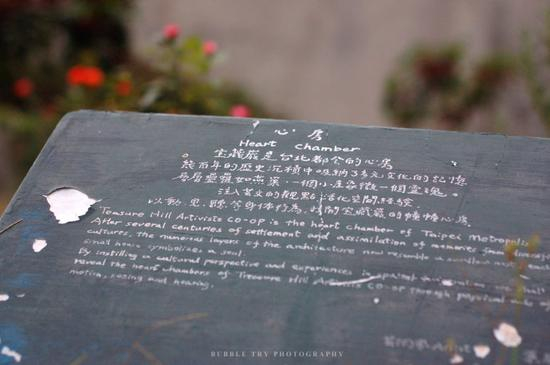 心房
Heart Chamber
寶藏巖是台北都會的心房
幾百年的歷史沉積中吸納了多元文化的記憶
層層疊疊如燕巢,一個小屋象徵一個靈魂。
注入藝文的觀點活化空間經驗
以動、思、聽等身體行為,
Treasure Hill Artivists co-op is the heart chamber of Taipei Metropolis
After several centuries of settlement and assimilation of memories from diverse
cultures, the numerous layers of the architecture now resemble a swallow nest
small house symbolizes a soul.
By instilling a cultural perspective and experiences in spatial
reveal the heart chambers of Treasure Hill Artivists Co-op through physical
motion, seeing and hearing.
BUBBLE TRY PHOTOGRAPHY